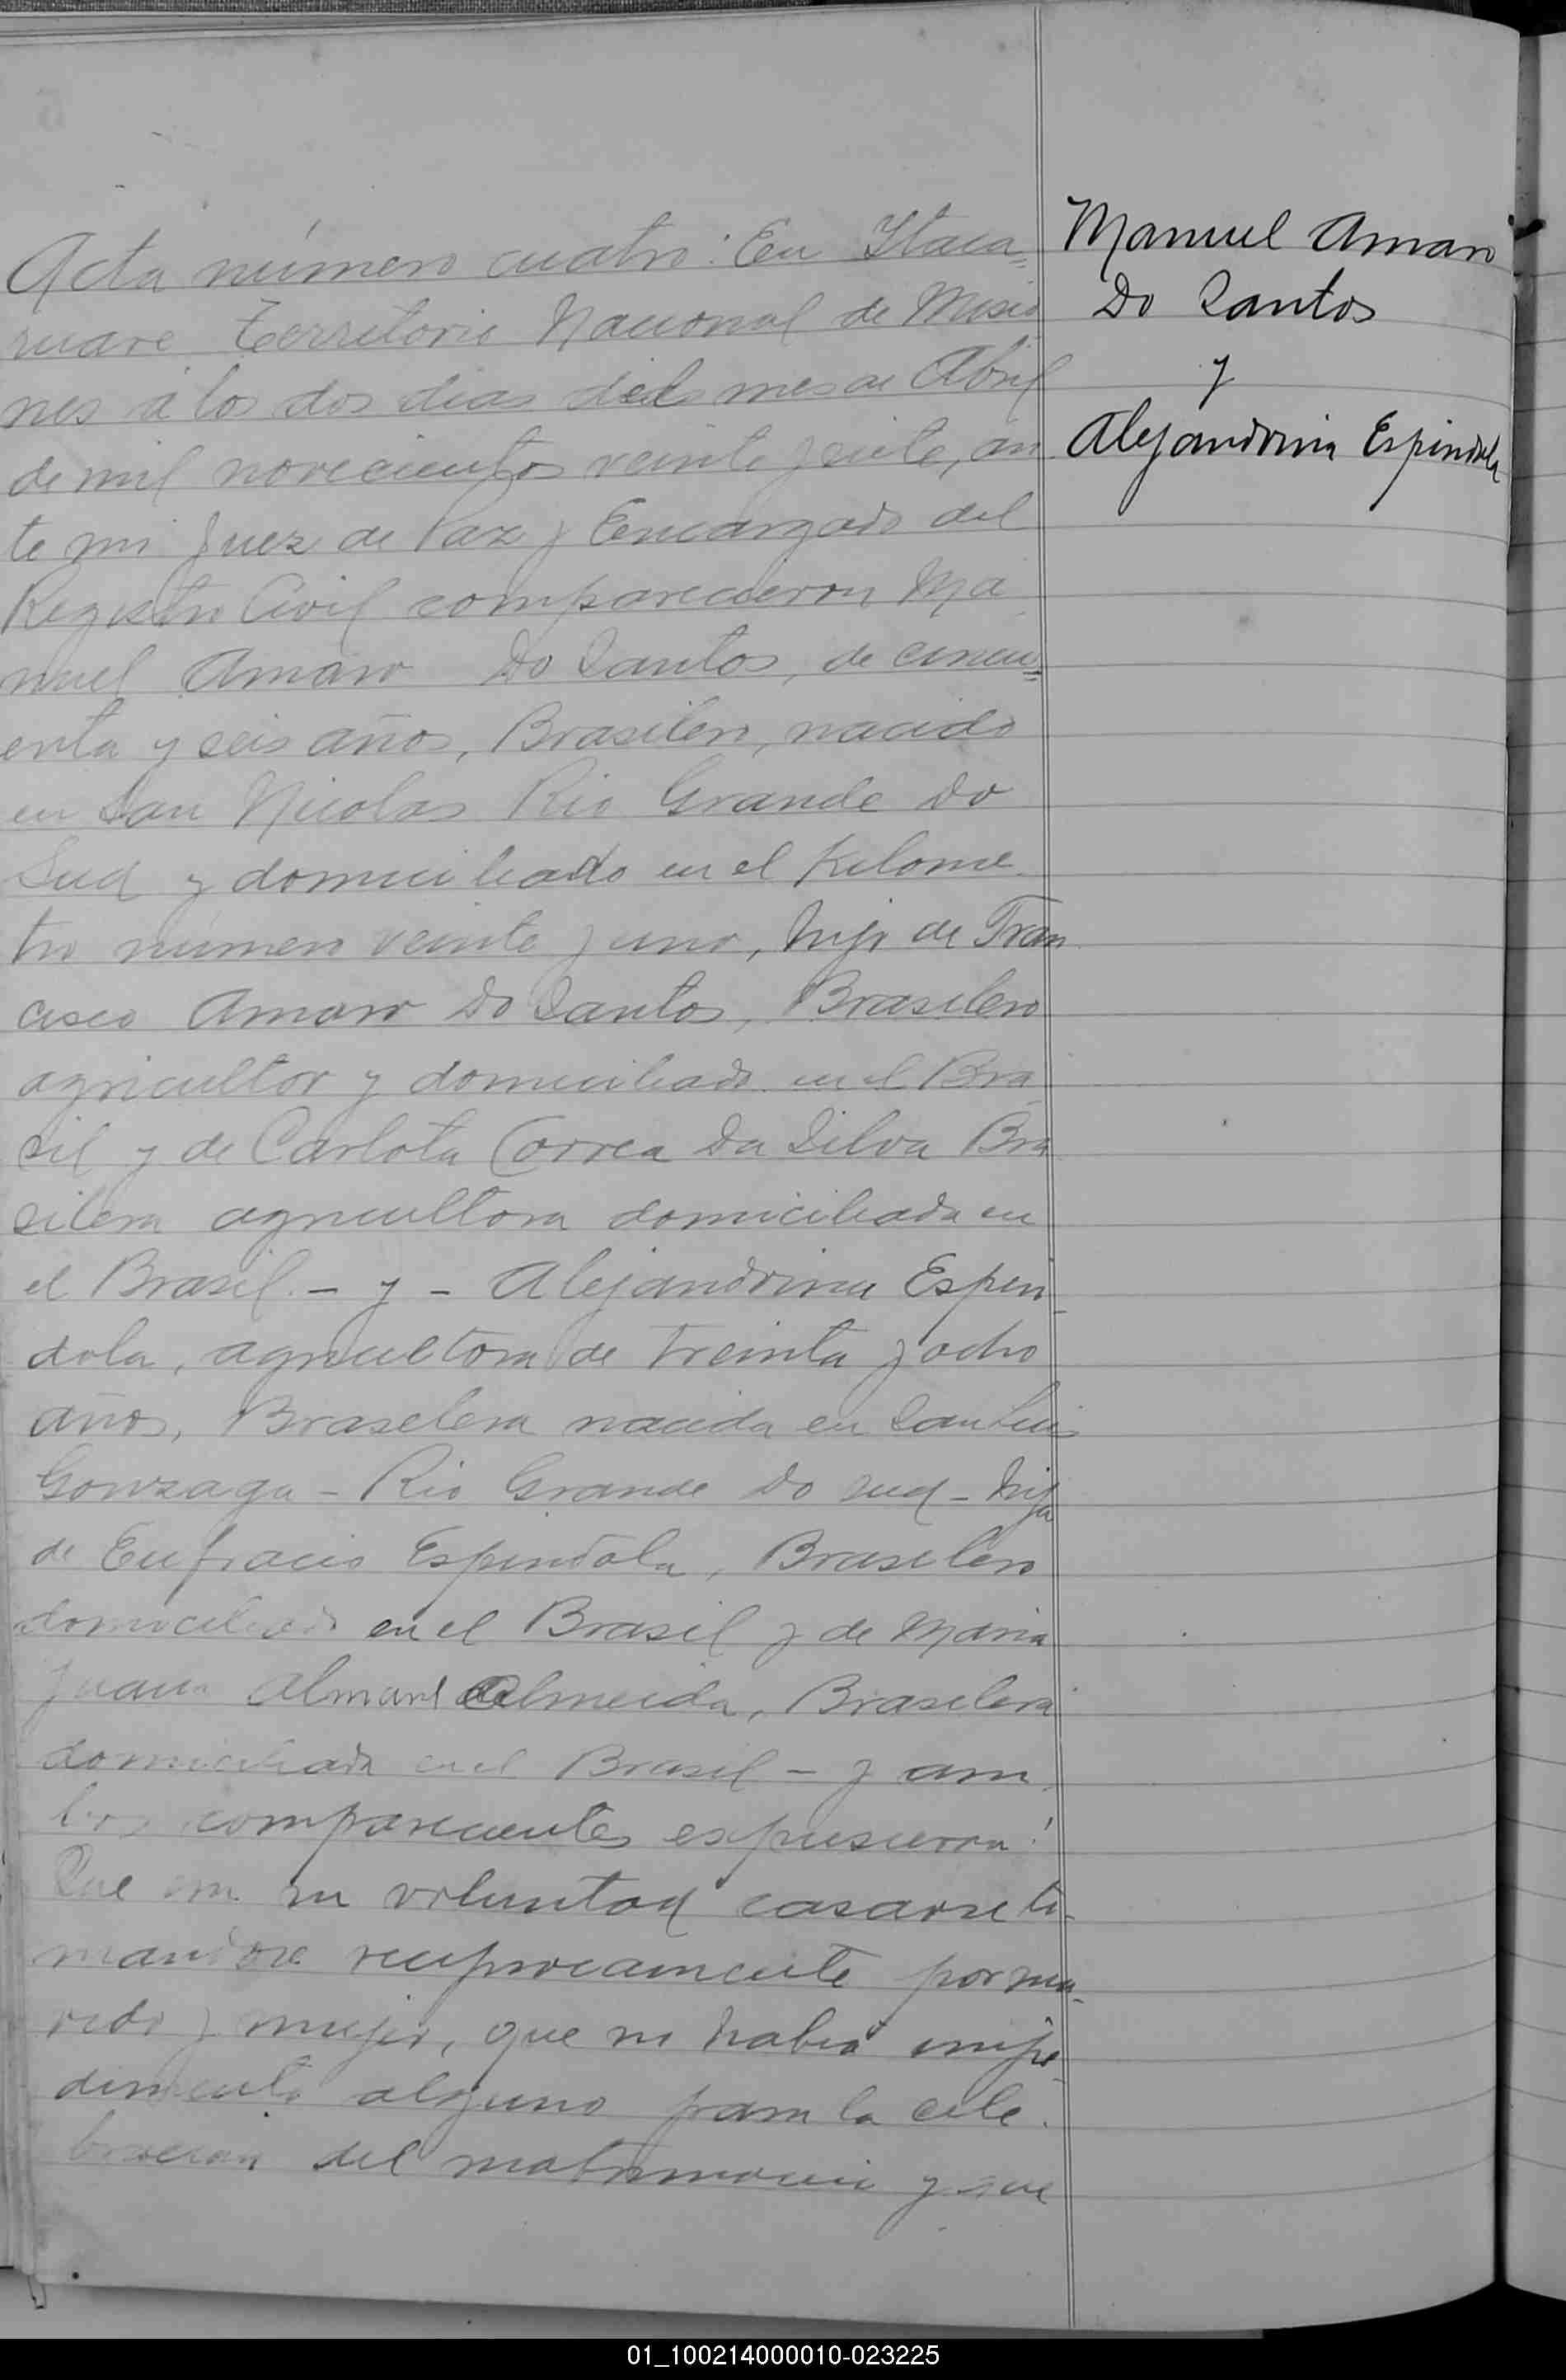 Acta número cuatro: En Itaca=
ruare Territorio Nacional de Misio
nes á los dos dias del mes de Abril
de mil novecientos veinte y siete, an
te mi Juez de Paz y Encargado del
Registro Civil comparecieron Ma
nuel Amaro Do Santos, de cincu=
enta y seis años, Brasilero, nacido
en San Nicolas Rio Grande Do
Sud y domiciliado en el Kilome
tro número veinte y uno, hijo de Fran
cisco Amaro Do Santos, Brasilero
agricultor y domiciliado en el Bra
sil y de Carlota Correa Da Silva Bra
silera agricultora domiciliada en
el Brasil. – y – Alejandrina Espin
dola, agricultora de treinta y ocho
años, Brasilera nacida en San Luis
Gonzaga – Rio Grande Do Sud – hija
de Eufracio Espindola, Brasilero
domiciliado en el Brasil y de Maria
Juana Almeida, Brasilera
domiciliada en el Brasil – y am
bos comparecientes expusieron:
Que era su voluntad casarse to-
mandose reciprocamente por ma-
rido y mujer, que no habia impe-
dimento alguno para la cele
bracion del matrimonio y que
Manuel Amaro
Do Santos
y
Alejandrina Espindola
01_100214000010-023225